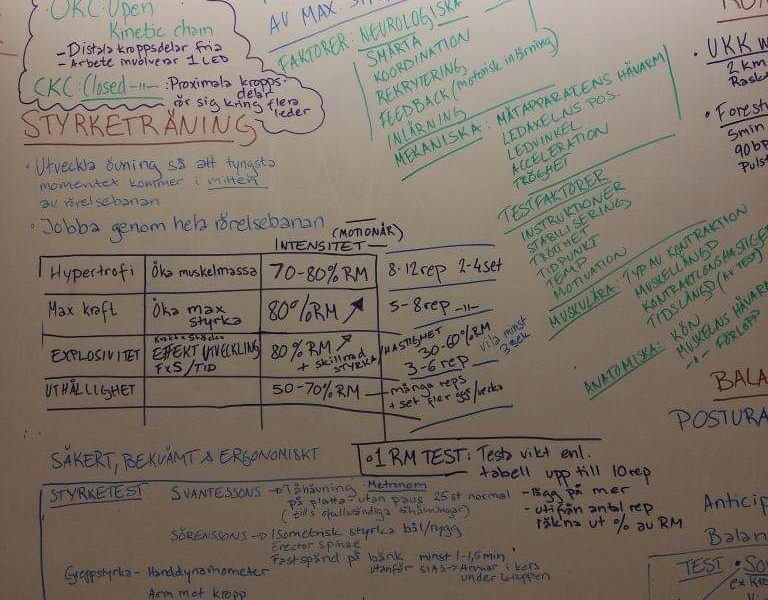 OKC: Open
Kinetic chain
- Distala kroppsdelar fria
- Arbete involverar 1 LED
CKC: Closed -11- : Proximala kropps-
delar
rör sig kring flera
leder
STYRKETRÄNING
• Utveckla övning så att tyngsta
momentet kommer i mitten
av rörelsebanan
• Jobba genom hela rörelsebanan
(MOTIONÄR)
INTENSITET
Hypertrofi Öka muskelmassa 70-80% RM 8-12 rep 2-4 set
Max kraft Öka max styrka 80% RM 5-8 rep -11-
EXPLOSIVITET EFFEKT UTVECKLING F×S/TID 80% RM + skillnad STYRKA/HASTIGHET 30-60% RM 3-6 rep vila minst
UTHÅLLIGHET 50-70% RM många reps
+ set fler ggr/vecka
SÄKERT, BEKVÄMT & ERGONOMISKT
• 1 RM TEST: Testa vikt enl.
tabell upp till 10 rep
- lägg på mer
- utifrån antal rep
räkna ut % av RM
STYRKETEST SVANTESSONS → Tåhävning - Metronom
på platta utan paus 25 st normal
(tills ofullständiga tåhävningar)
SÖRENSSONS → Isometrisk styrka bål/rygg
Erector Spinae
Fastspänd på bänk minst 1-1,5 min
utanför SIAS → Armar i kors
under kroppen
Greppstyrka - Handdynamometer
Arm mot kropp
AV MAX. ST
FAKTORER: NEUROLOGISKA
SMÄRTA
KOORDINATION
REKRYTERING
FEEDBACK (motorisk inlärning)
INLÄRNING
MEKANISKA: MÄTAPPARATENS HÄVARM
LEDAXELNS POS.
LEDVINKEL
ACCELERATION
TRÖGHET
TESTFAKTORER
INSTRUKTIONER
STABILISERING
TRÖTTHET
TIDPUNKT
TEMP
MOTIVATION
MUSKULÄRA: TYP AV KONTRAKTION
MUSKELLÄNGD
KONTRAKTIONSHASTIGHE
TIDSLÄNGD (AV TEST)
ANATOMISKA: KÖN
MUSKELNS HÄVARM
-11- FÖRLOPP
• UKK
2 km
Rask
5min
90bp
Puls
BALA
POSTURA
Anticip
Balan
TEST
ex